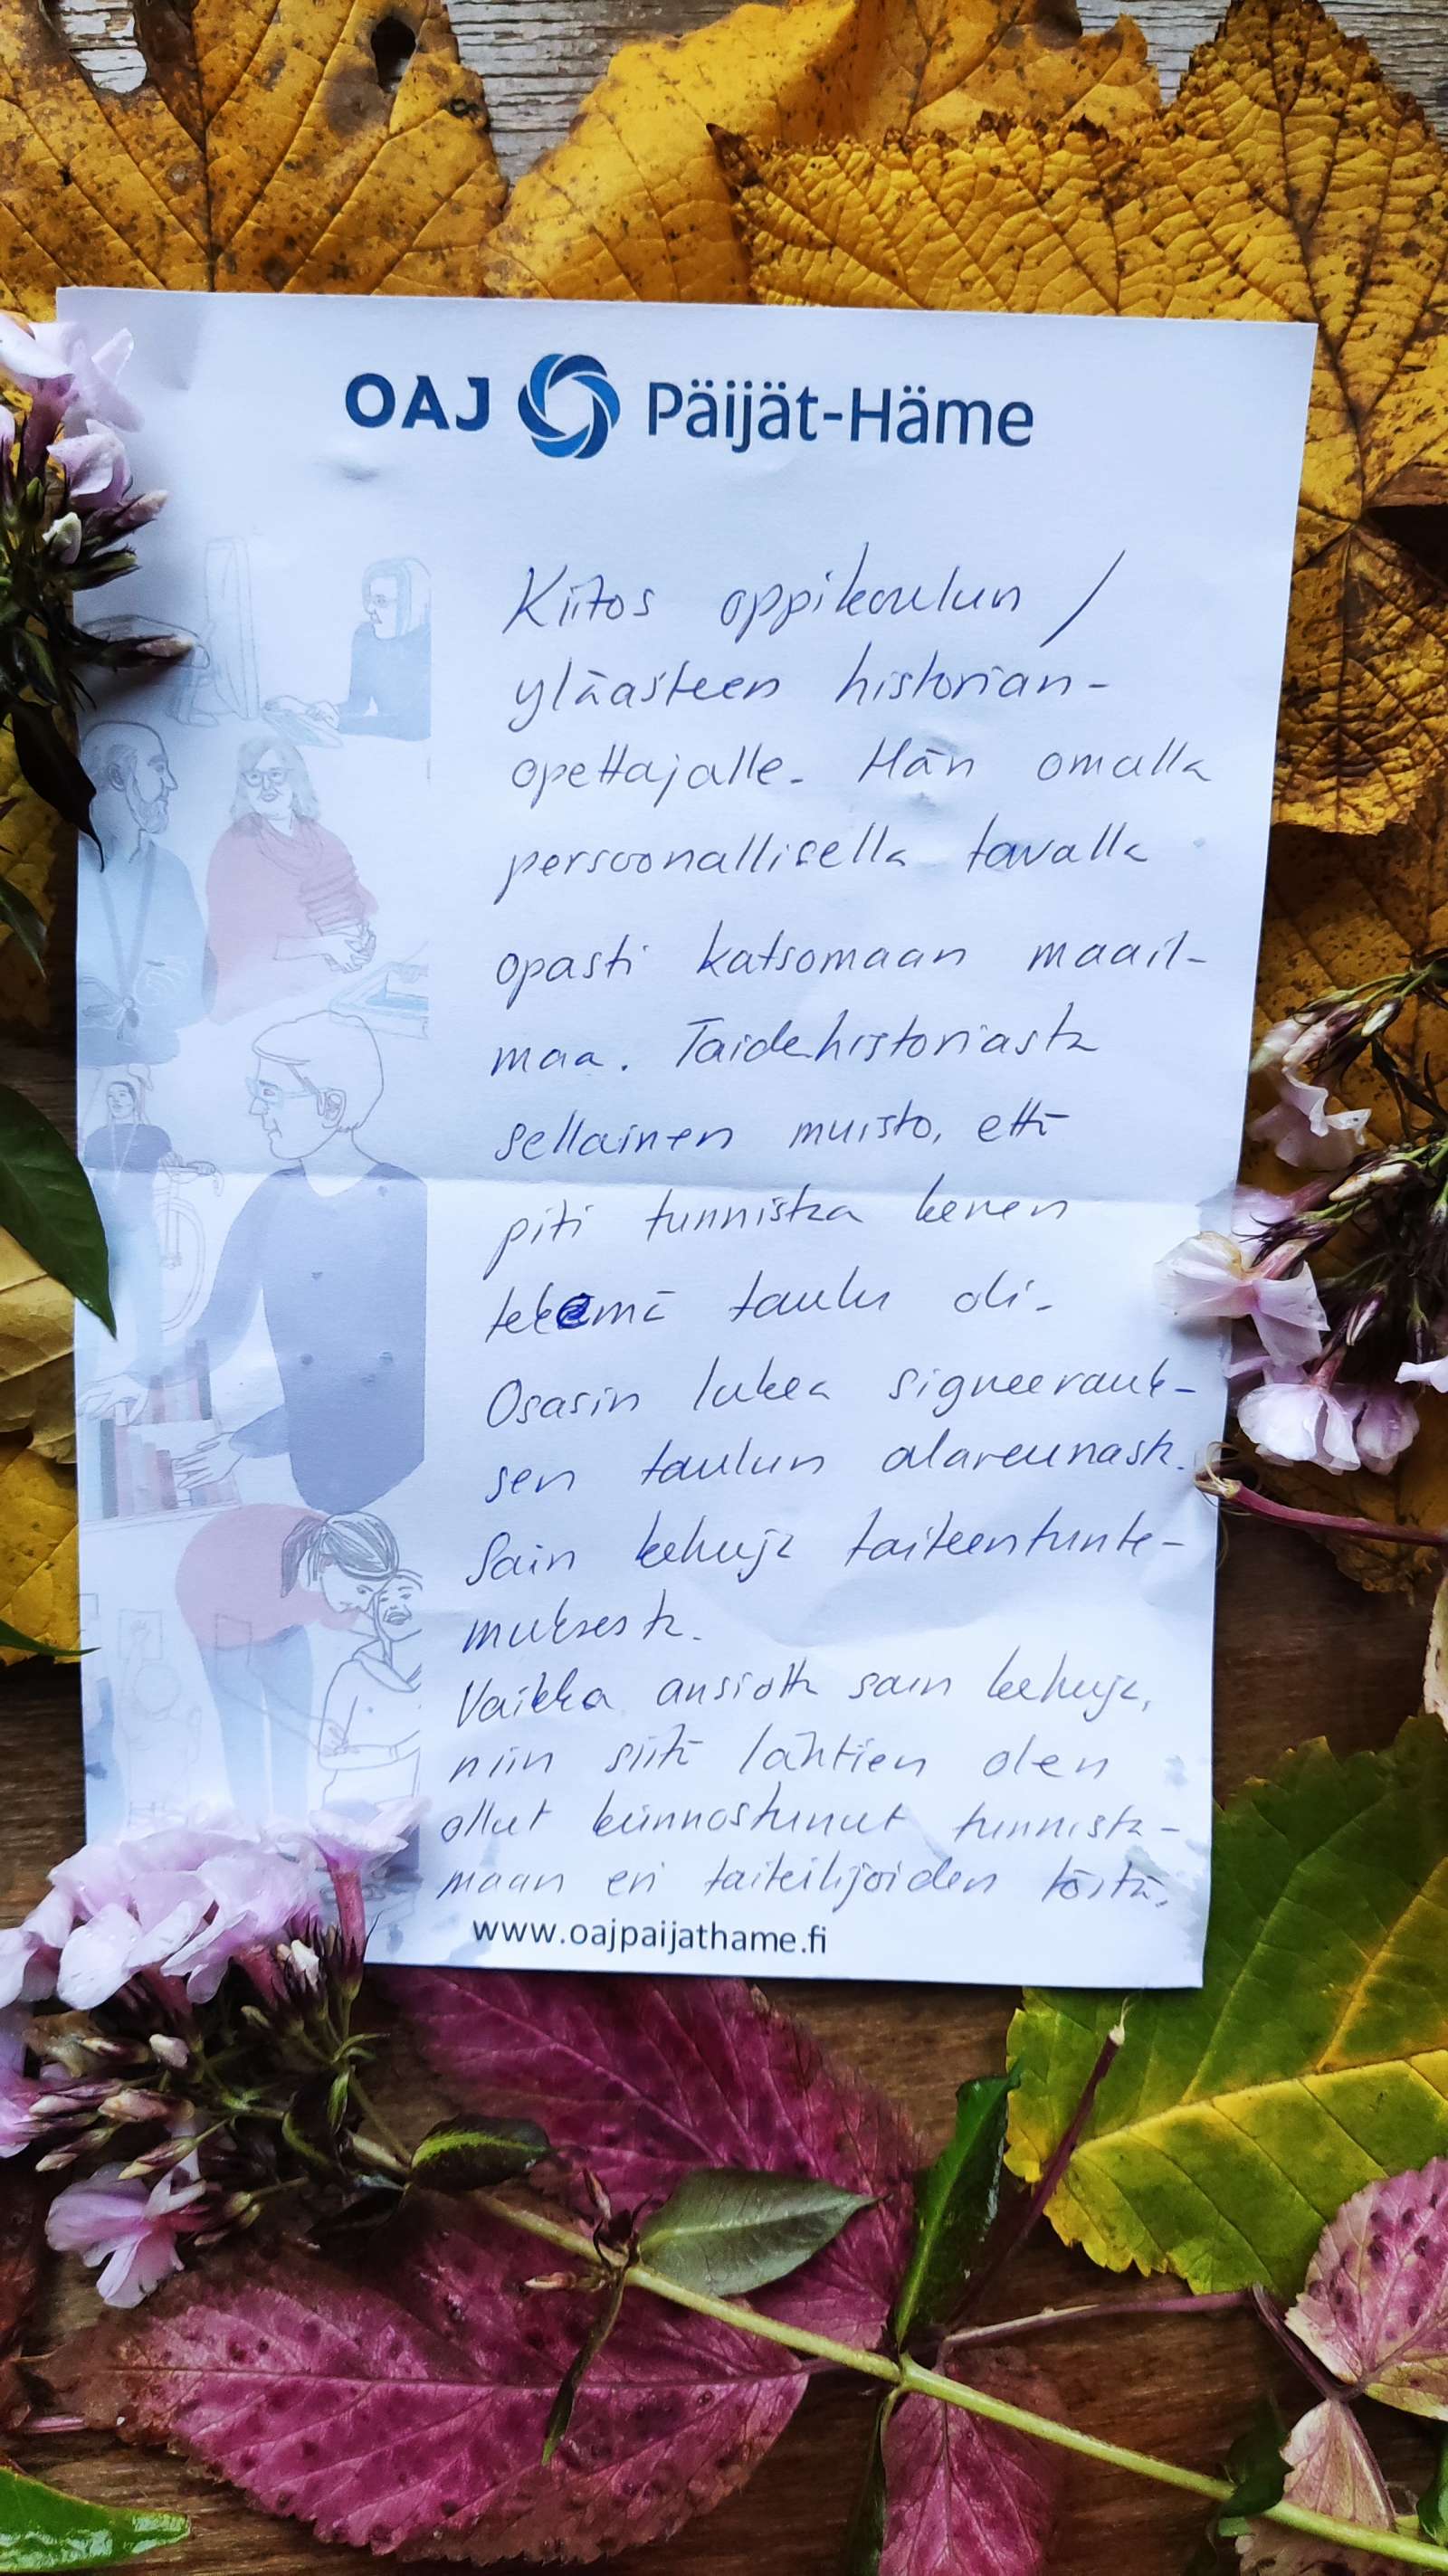 OAJ Päijät-Häme
Kiitos oppikoulun /
yläasteen historian-
opettajalle. Hän omalla
persoonallisella tavalla
opasti katsomaan maail-
maa. Taidehistoriasta
sellainen muisto, että
piti tunnistaa kenen
tekemä taulu oli.
Osasin lukea signeerauk-
sen taulun alareunasta.
Sain kehuja taiteentunte-
muksesta.
Vaikka ansiotta sain kehuja,
niin siitä lähtien olen
ollut kiinnostunut tunnista-
maan eri taiteilijoiden töitä.
www.oajpaijathame.fi